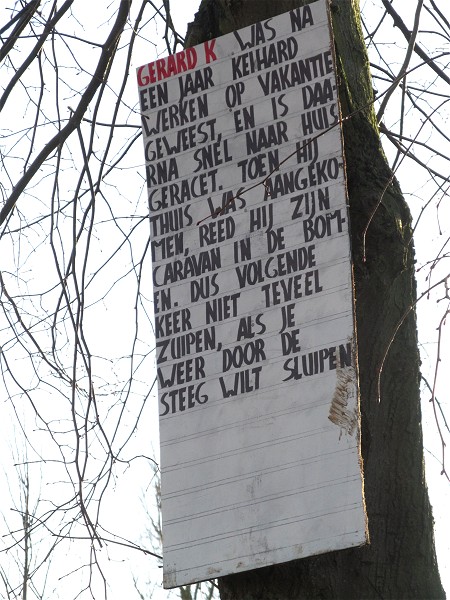 GERARD K WAS NA
EEN JAAR KEIHARD
WERKEN OP VAKANTIE
GEWEEST, EN IS DAA-
RNA SNEL NAAR HUIS
GERACET. TOEN HIJ
THUIS WAS AANGEKO-
MEN, REED HIJ ZIJN
CARAVAN IN DE BOM-
EN. DUS VOLGENDE
KEER NIET TEVEEL
ZUIPEN, ALS JE
WEER DOOR DE
STEEG WILT SLUIPEN